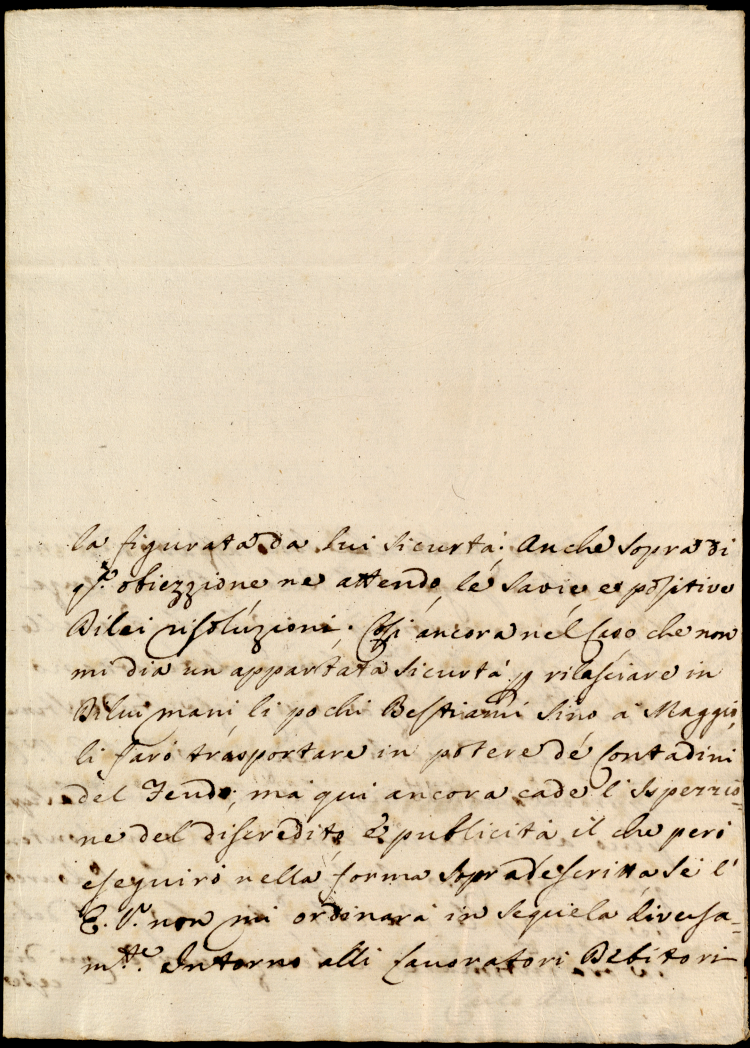 la figurata da lui sicurtà. Anche sopra di
q.ta obiezzione ne attendo le savie e positive
Di lei risoluzioni. Così ancora nel caso che non
mi dia un appartata sicurtà p rilasciare in
Di lui mani li pochi Bestiami sino a Maggio,
li farò trasportare in potere de Contadini
del Feudo, ma qui ancora cade l'
ne del discredito, e publicità il che però
eseguirò nella forma sopradescritta se l'
E. V. non mi ordinarà in sequela diversa-
m.te. Intorno alli lavoratori Debitori